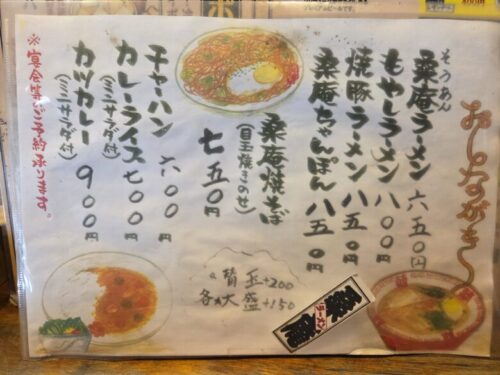 おしながき
そうあん
桑庵ラーメン 六五0円
もやしラーメン 八00円
焼豚ラーメン 八五0円
桑庵ちゃんぽん 八五0円
桑庵焼そば
(目玉焼きのせ)
七五0円
チャーハン 六00円
カレーライス 七00円
(ミニサラダ付)
カツカレー 900円
(ミニサラダ付)
※宴会等ご予約承ります。
替玉+200
各大盛+150
ラーメン
桑庵